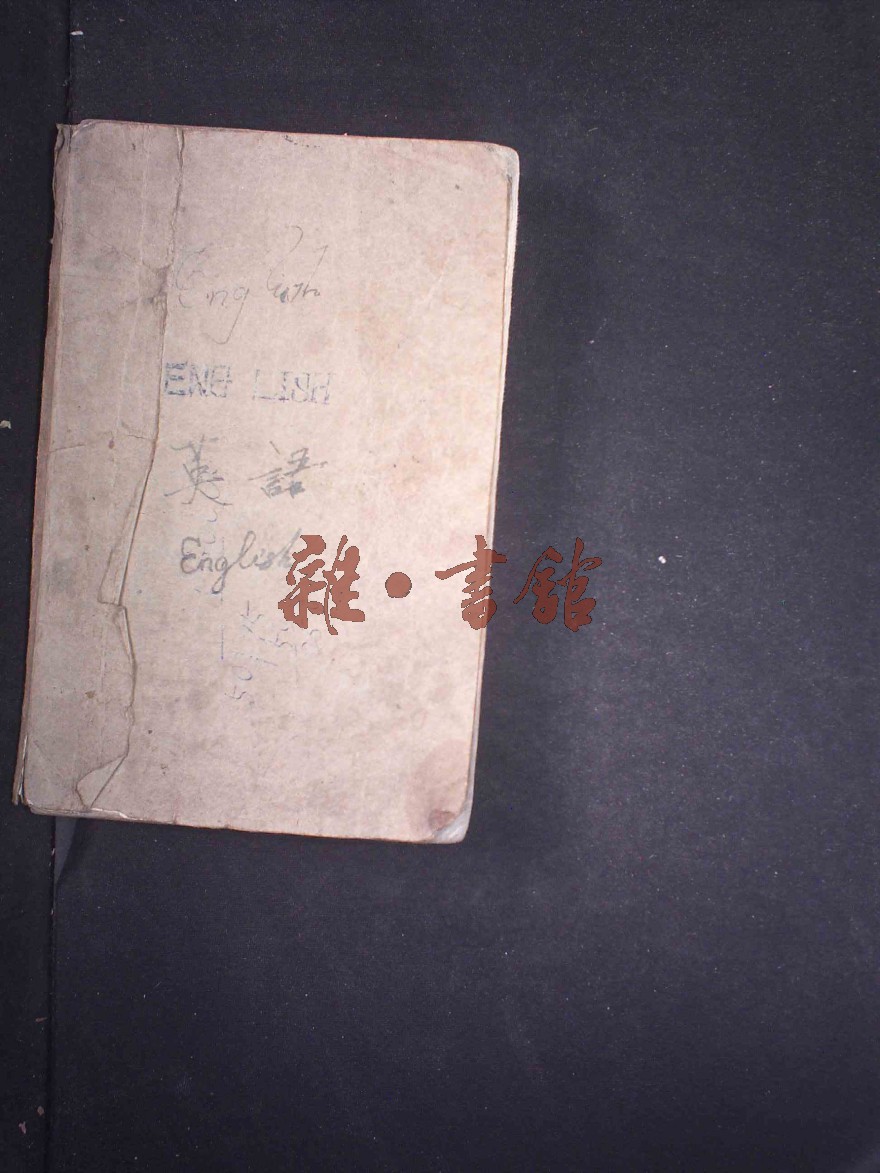 English
ENGLISH
英語
English
雜·書館